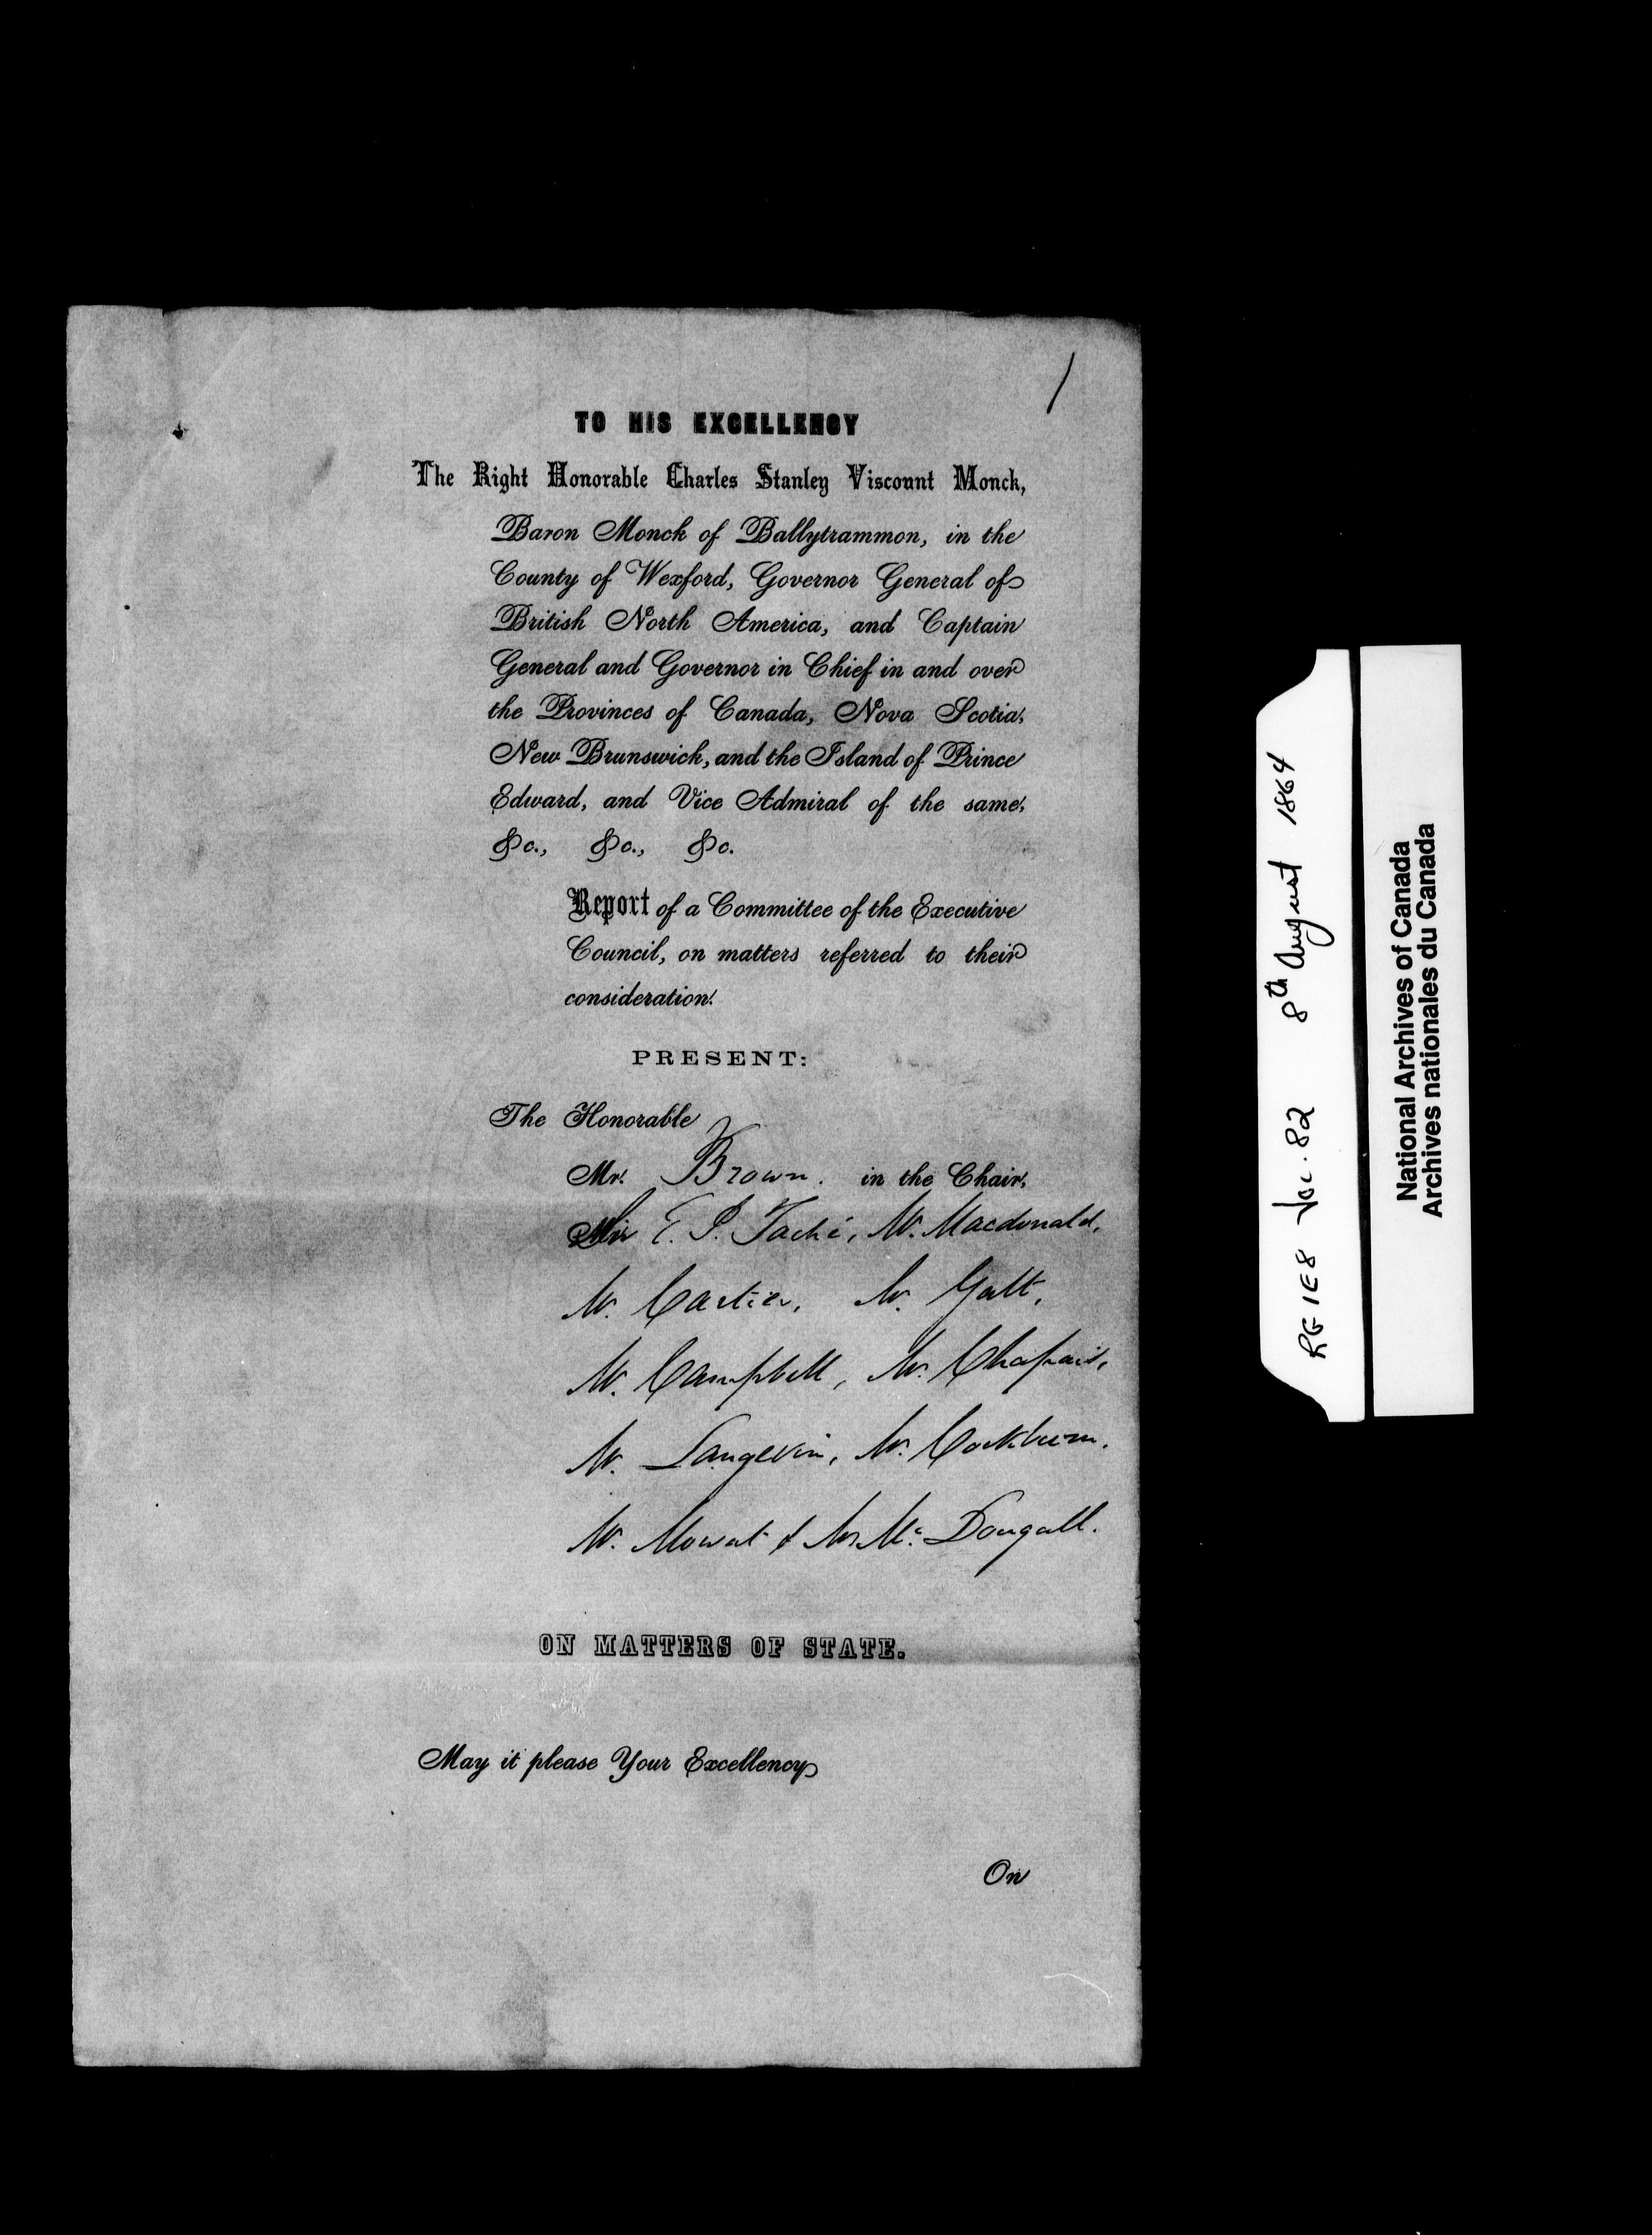 /
TO HIS EXCELLENCY
The Right Honorable Charles Stanley Viscount Monck,
Baron Monck of Ballytrammon, in the
County of Wexford, Governor General of
British North America, and Captain
General and Governor in Chief in and over
the Provinces of Canada, Nova Scotia,
New Brunswick, and the Island of Prince
Edward, and Vice Admiral of the same,
&c., &c., &c.
Report of a Committee of the Executive
Council, on matters referred to their
consideration.
PRESENT:
The Honorable
Mr. Brown. in the Chair.
Sir E. P. Taché, Mr. Macdonald,
Mr. Cartier, Mr. Galt,
Mr. Campbell, Mr. Chapais,
Mr. Langevin, Mr. Cockburn.
Mr. Mowat & Mr. Mc. Dougall.
ON MATTERS OF STATE.
May it please Your Excellency
On
RG 1E8 Vol. 82 8th August 1864
National Archives of Canada
Archives nationales du Canada